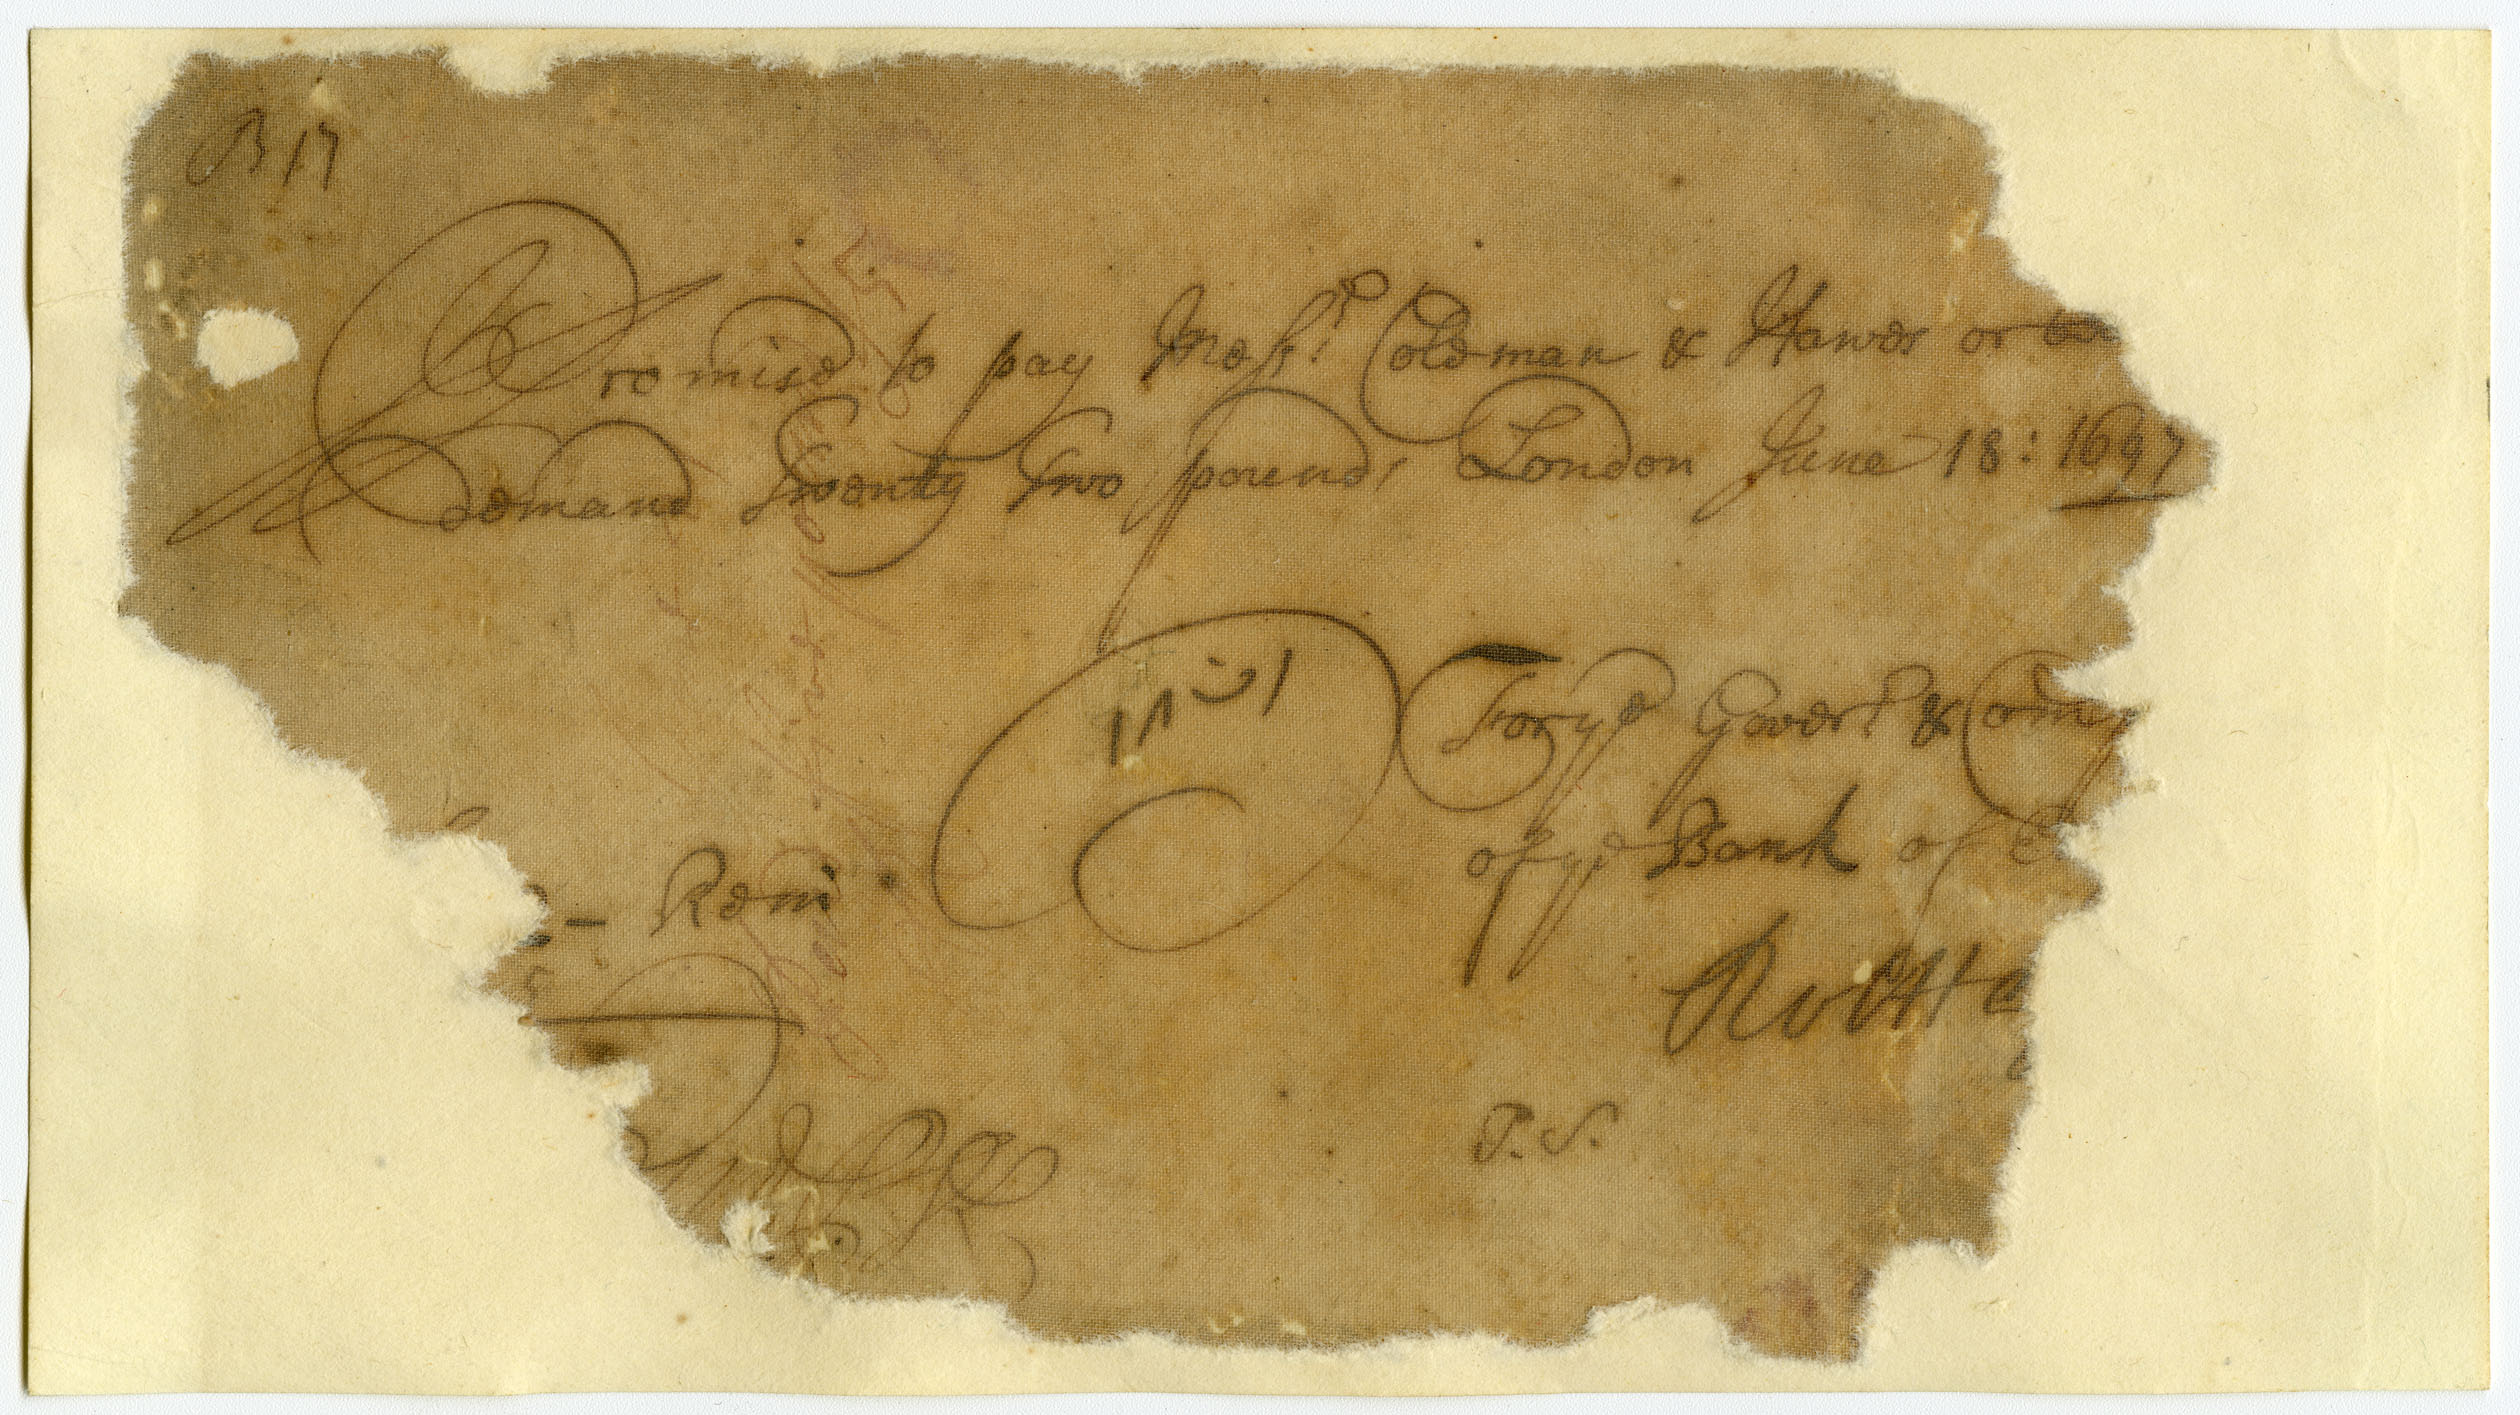 B 17
I Promise to pay Messrs Coldman & Hawes or
Demand Twenty Two pounds London June 18: 1697
For ye Goverr & Comp
of ye Bank of E
Rem
Robt He
P. S.